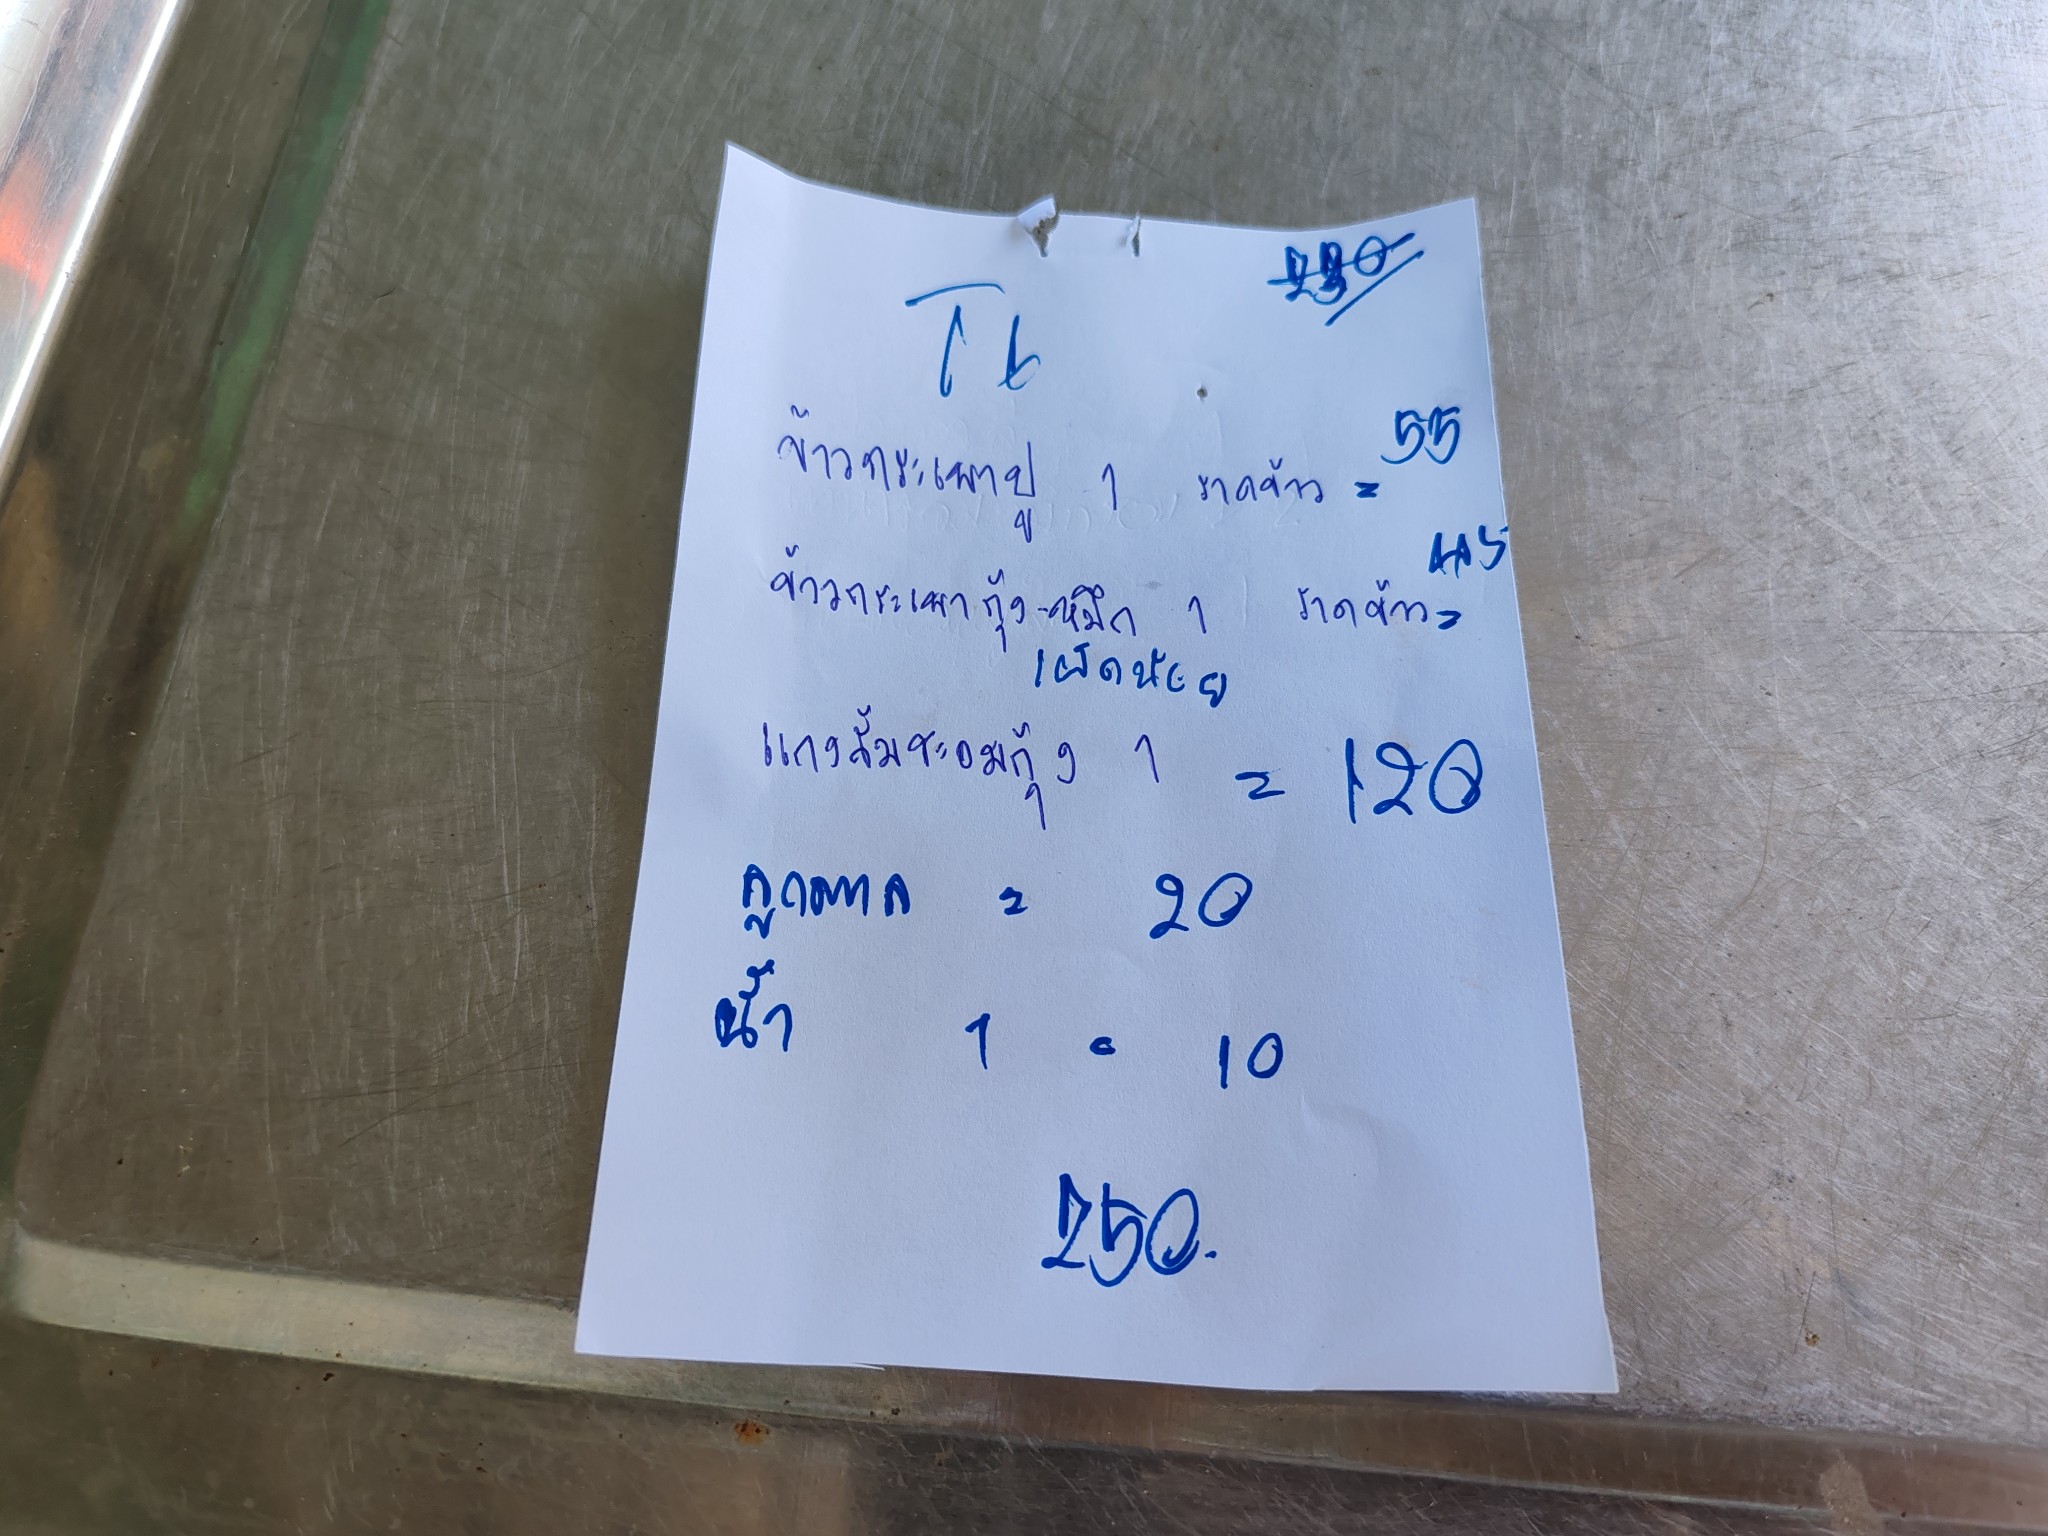 T6
ข้าวกระเพาปู 1 ราดข้าว = 55
ข้าวกระเพากุ้ง-หมึก 1 ราดข้าว =
เผ็ดน้อย
แกงส้มชะอมกุ้ง 1 = 120
ลูกตาล = 20
น้ำ 1 = 10
250.